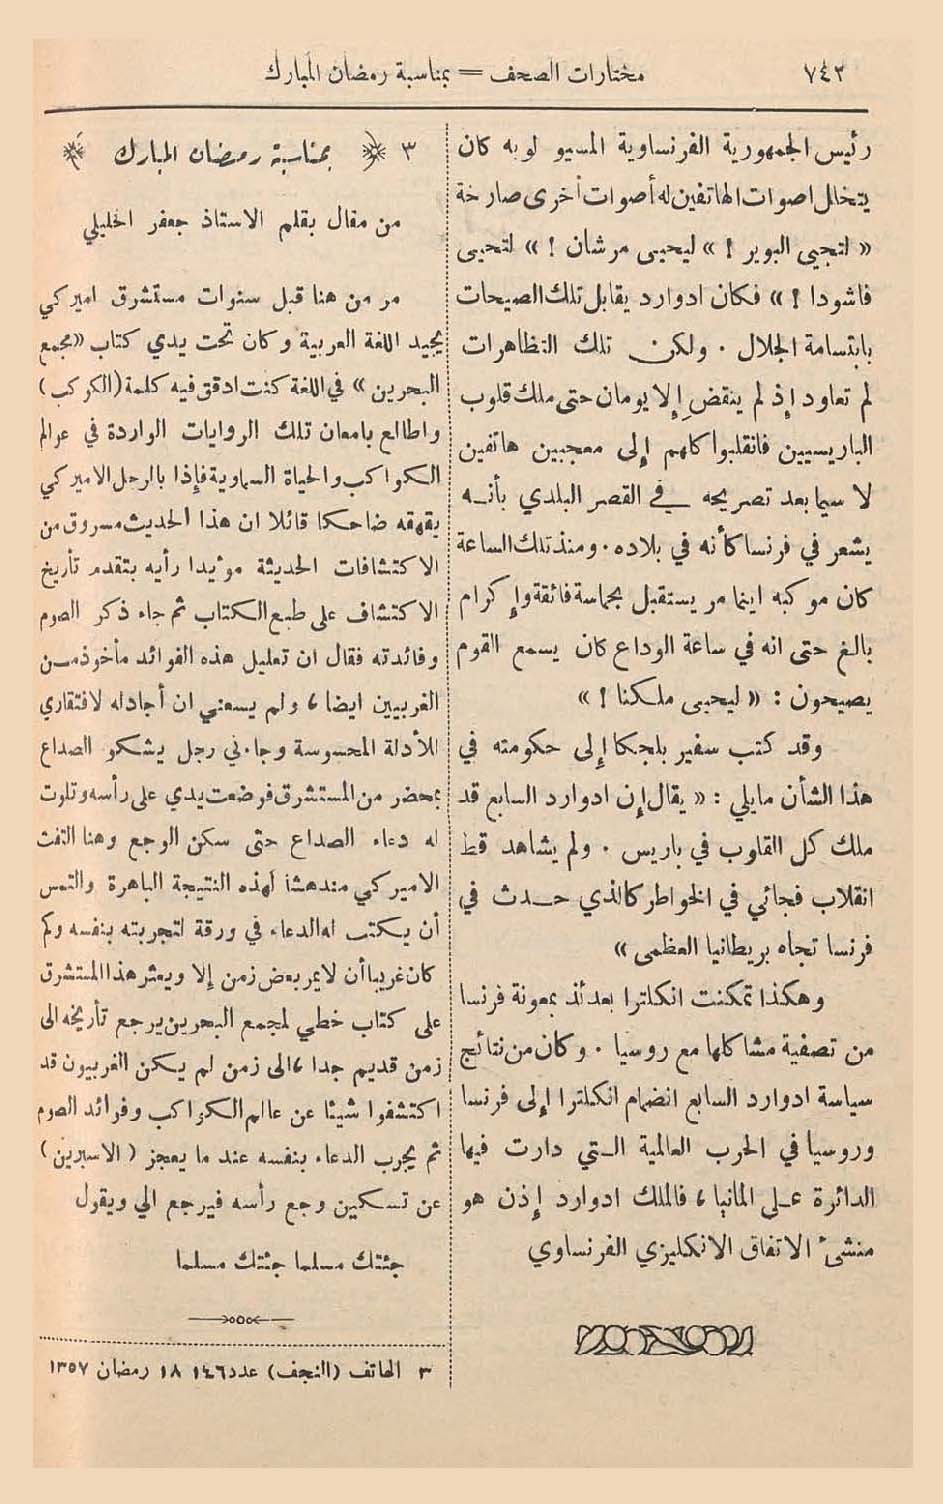 ٧٤٢
مختارات الصحف = بمناسبة رمضان المبارك
رئيس الجمهورية الفرنساوية المسيو لوبه كان
يتخالل اصوات الهاتفين له أصوات أخرى صارخة
« لتجيى البوير ! » ليحيى مرشان ! » لتحيى
فاشودا ! » فكان ادوارد يقابل تلك الصيحات
بابتسامة الجلال . ولكن تلك التظاهرات
لم تعاود إذ لم ينقض إلا يومان حتى ملك قلوب
الباريسيين فانقلبوا كلهم إلى معجبين هاتفين
لا سيما بعد تصريحه في القصر البلدي بأنه
يشعر في فرنسا كأنه في بلاده . ومنذ تلك الساعة
كان موكبه اينما مر يستقبل بحماسة فائقة وإكرام
بالغ حتى انه في ساعة الوداع كان يسمع القوم
يصيحون : « ليحيى ملكنا ! »
وقد كتب سفير بلجكا إلى حكومته في
هذا الشأن مايلي : « يقال إن ادوارد السابع قد
ملك كل القلوب في باريس . ولم يشاهد قط
انقلاب فجائي في الخواطر كالذي حدث في
فرنسا تجاه بريطانيا العظمى »
وهكذا تمكنت انكلترا بعدئذ بمعونة فرنسا
من تصفية مشاكلها مع روسيا . وكان من نتائج
سياسة ادوارد السابع انضمام انكلترا إلى فرنسا
وروسيا في الحرب العالمية التي دارت فيها
الدائرة على المانيا ، فالملك ادوارد إذن هو
منشئ الاتفاق الانكليزي الفرنساوي
٣ بمناسبة رمضان المبارك
من مقال بقلم الاستاذ جعفر الخليلي
مر من هنا قبل سنوات مستشرق اميركي
يجيد اللغة العربية وكان تحت يدي كتاب « مجمع
البحرين » في اللغة كنت ادقق فيه كلمة ( الكركب )
واطالع بامعان تلك الروايات الواردة في عوالم
الكواكب والحياة السماوية فإذا بالرجل الاميركي
يقهقه ضاحكا قائلا ان هذا الحديث مسروق من
الاكتشافات الحديثة مؤيدا رأيه بتقدم تأريخ
الاكتشاف على طبع الكتاب ثم جاء ذكر الصوم
وفائدته فقال ان تعليل هذه الفوائد مأخوذ من
الغربيين ايضا ، ولم يسعني ان أجادله لافتقاري
للأدلة المحسوسة وجاءني رجل يشكو الصداع
بمحضر من المستشرق فوضعت يدي على رأسه وتلوت
له دعاء الصداع حتى سكن الوجع وهنا التفت
الاميركي مندهشا لهذه النتيجة الباهرة والتمس
أن يكتب له الدعاء في ورقة لتجربته بنفسه وكم
كان غريبا أن لا يمر بعض زمن إلا ويعثر هذا المستشرق
على كتاب خطي لمجمع البحرين يرجع تأريخه الى
زمن قديم جدا ، الى زمن لم يكن الغربيون قد
اكتشفوا شيئا عن عالم الكواكب وفوائد الصوم
ثم يجرب الدعاء بنفسه عند ما يعجز ( الاسبرين )
عن تسكين وجع رأسه فيرجع الي ويقول
جئتك مسلما جئتك مسلما
٣ الهاتف ( النجف ) عدد ١٤٦ ١٨ رمضان ١٣٥٧